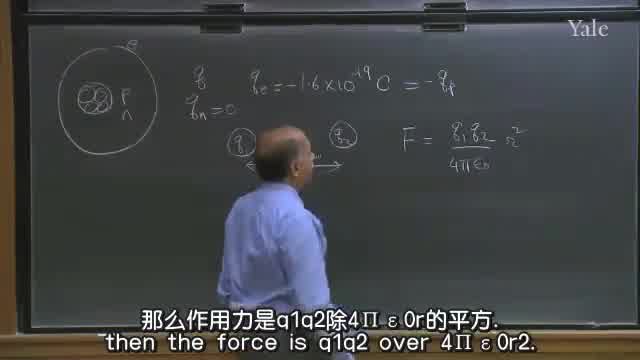 Yale
e
q qe = -1.6 × 10^-19 C = -qp
P
n
qn = 0
q1 q2
F = q1 q2 / 4π ε0 r^2
那么作用力是q1q2除4Π ε0r的平方.
then the force is q1q2 over 4Π ε0r2.